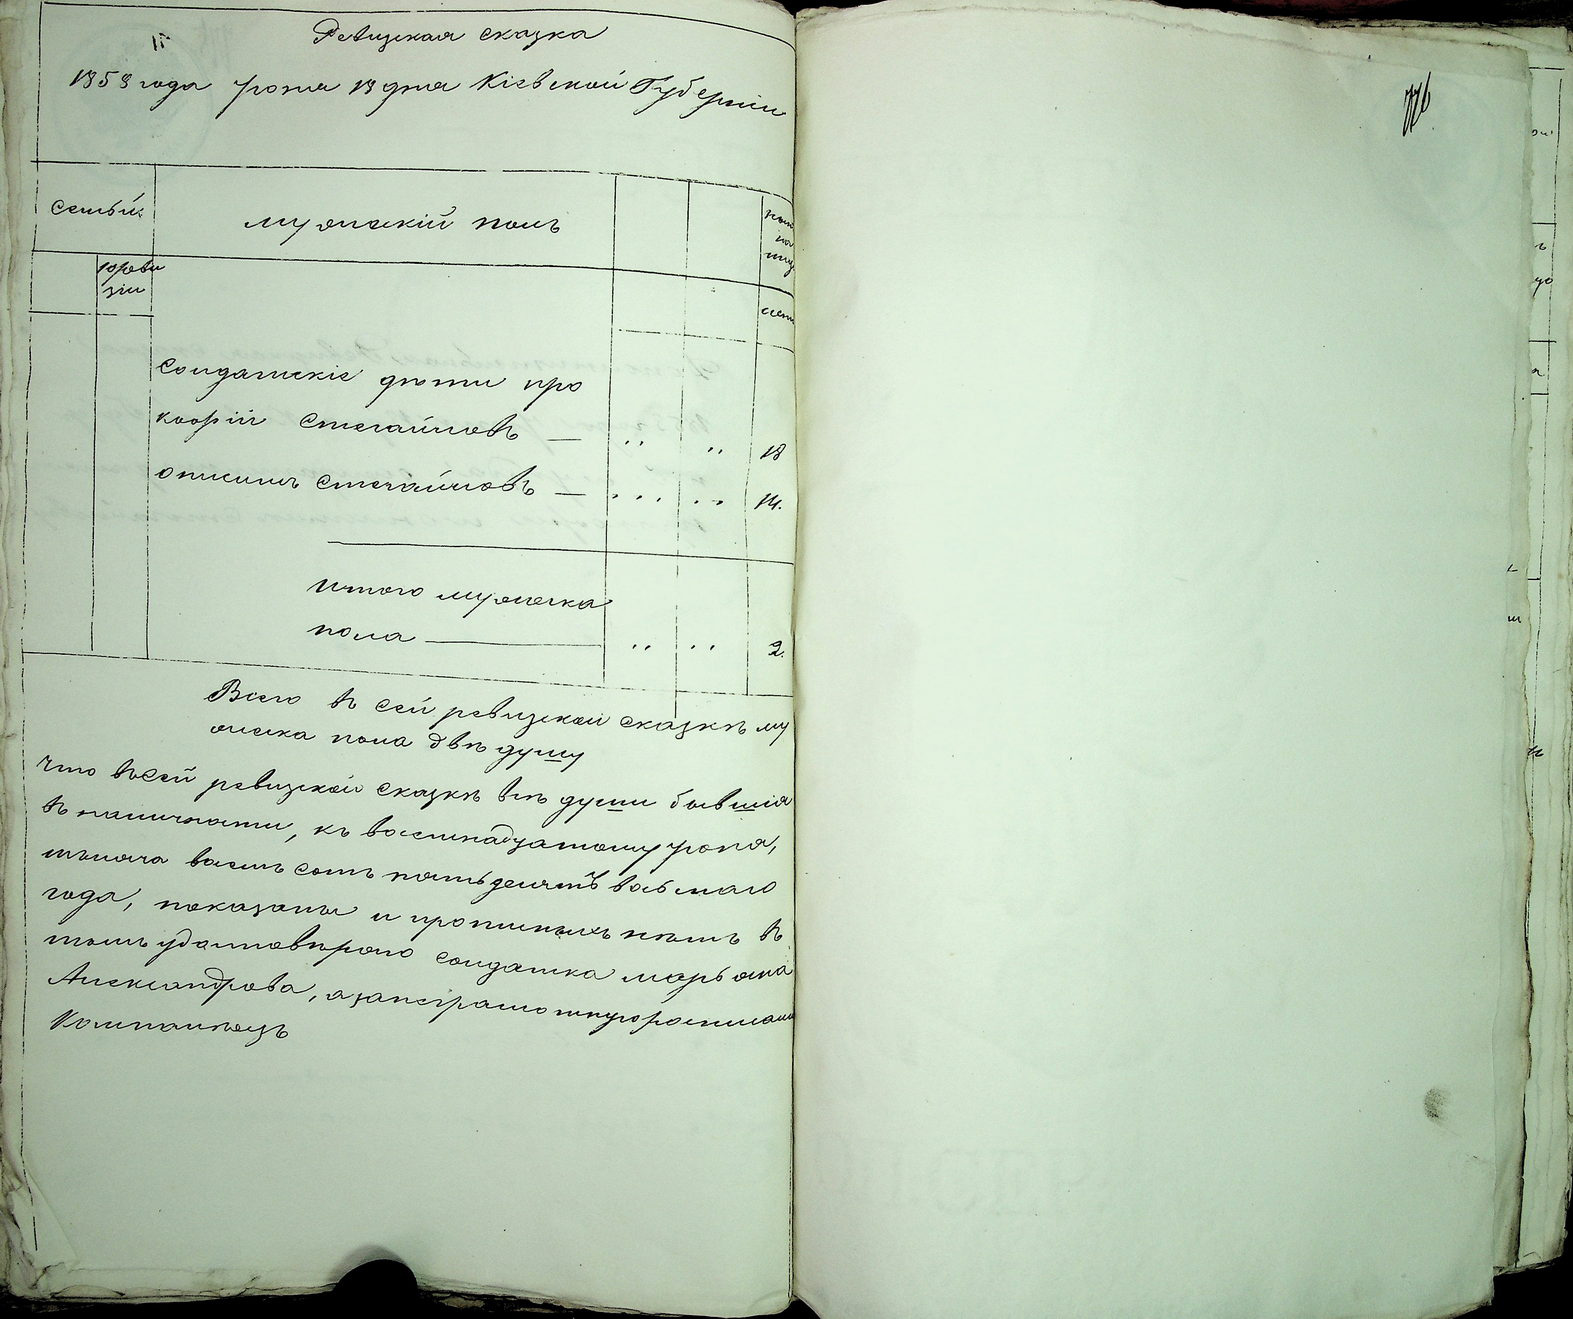 Ревизская сказка
1858 года июня 18 дня Кіевской Губерніи
семьи
мужескій полъ
10 реви
зіи
солдатскіе дѣти про
кофій Стегайловъ — " " 18
онисимъ стегайловъ — " " 14.
итого мужеска
пола — " " 2.
Всего въ сей ревизской сказкѣ му
жеска пола двѣ душу
что въ сей ревизской сказкѣ всѣ души бывшія
въ наличности, къ восемнадцатому іюня,
тысяча восемь сотъ пятьдесятъ восьмаго
года, показаны и прописныхъ нѣтъ въ
томъ удостовѣряю солдатка марья
Александрова, а за неграмотную росписался
Компаніецъ
776